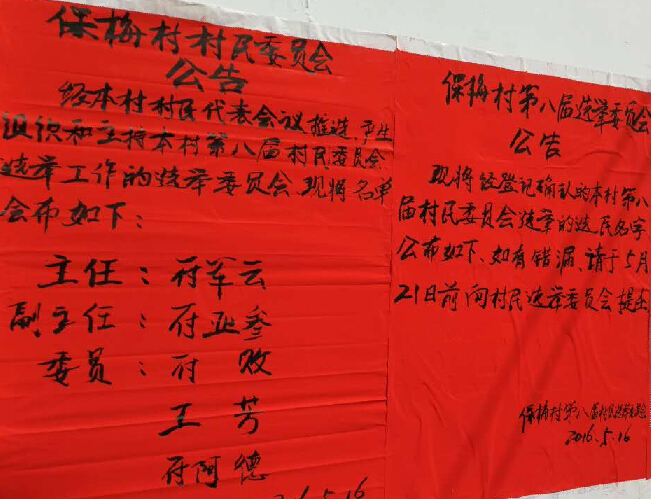 保梅村村民委员会
公告
经本村村民代表会议推选,产生
组织和主持本村第八届村民委员会
选举工作的选举委员会,现将名单
公布如下:
主任:符军云
副主任:符亚叁
委员:符败
王芳
符阿德
2016.5.16
保梅村第八届选举委员会
公告
现将经登记确认的本村第八
届村民委员会选举的选民名字,
公布如下、如有错漏、请于5月
21日前向村民选举委员会提出
保梅村第八届村民选举委员会
2016.5.16